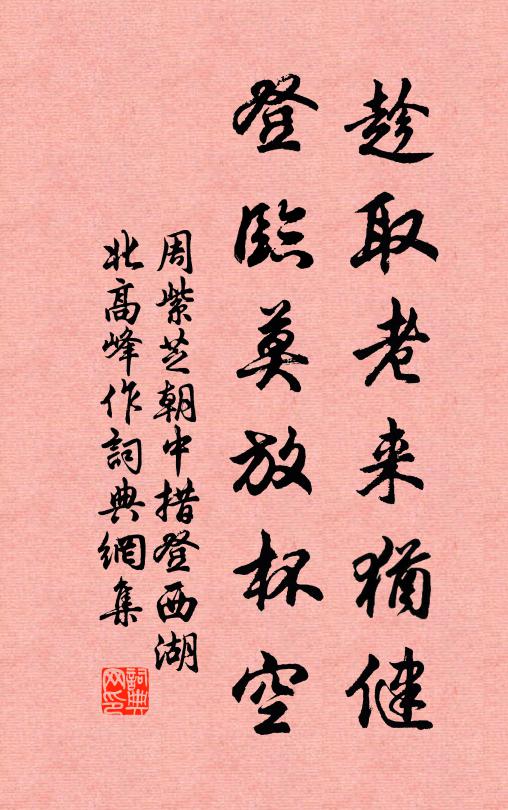 趁取老来猶健
登臨莫放杯空
周紫芝朝中措登西湖
北高峰作詞典網集
詞典網印